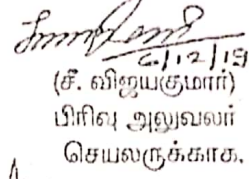 6/12/19
(சீ. விஜயகுமார்)
பிரிவு அலுவலர்
செயலருக்காக.